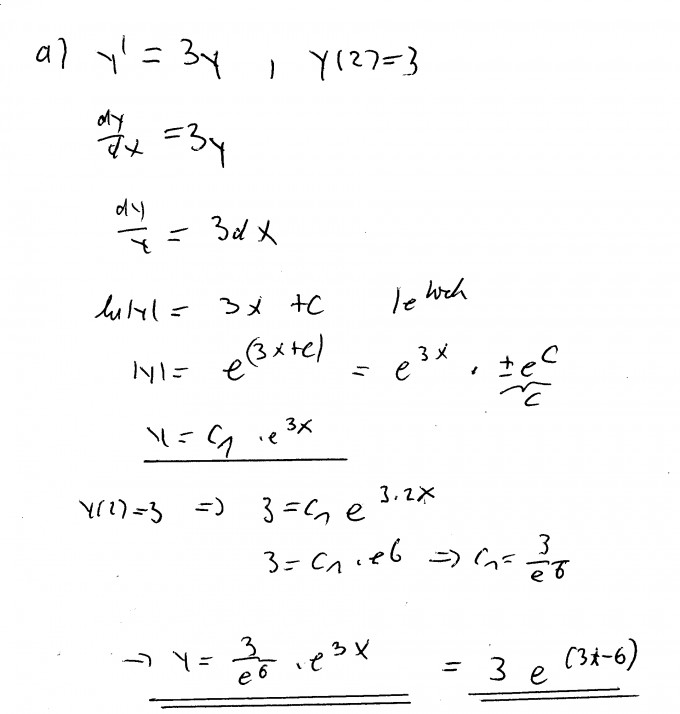 a) y' = 3y , y(2)=3
dy/dx = 3y
dy/y = 3dx
ln|y| = 3x +C |e hoch
|y| = e^(3x+C) = e^3x · ±e^C
C
y = C1 · e^3x
y(2)=3 => 3 = C1 e^3·2x
3 = C1 · e6 => C1 = 3/e^6
→ y = 3/e^6 · e^3x = 3 e^(3x-6)